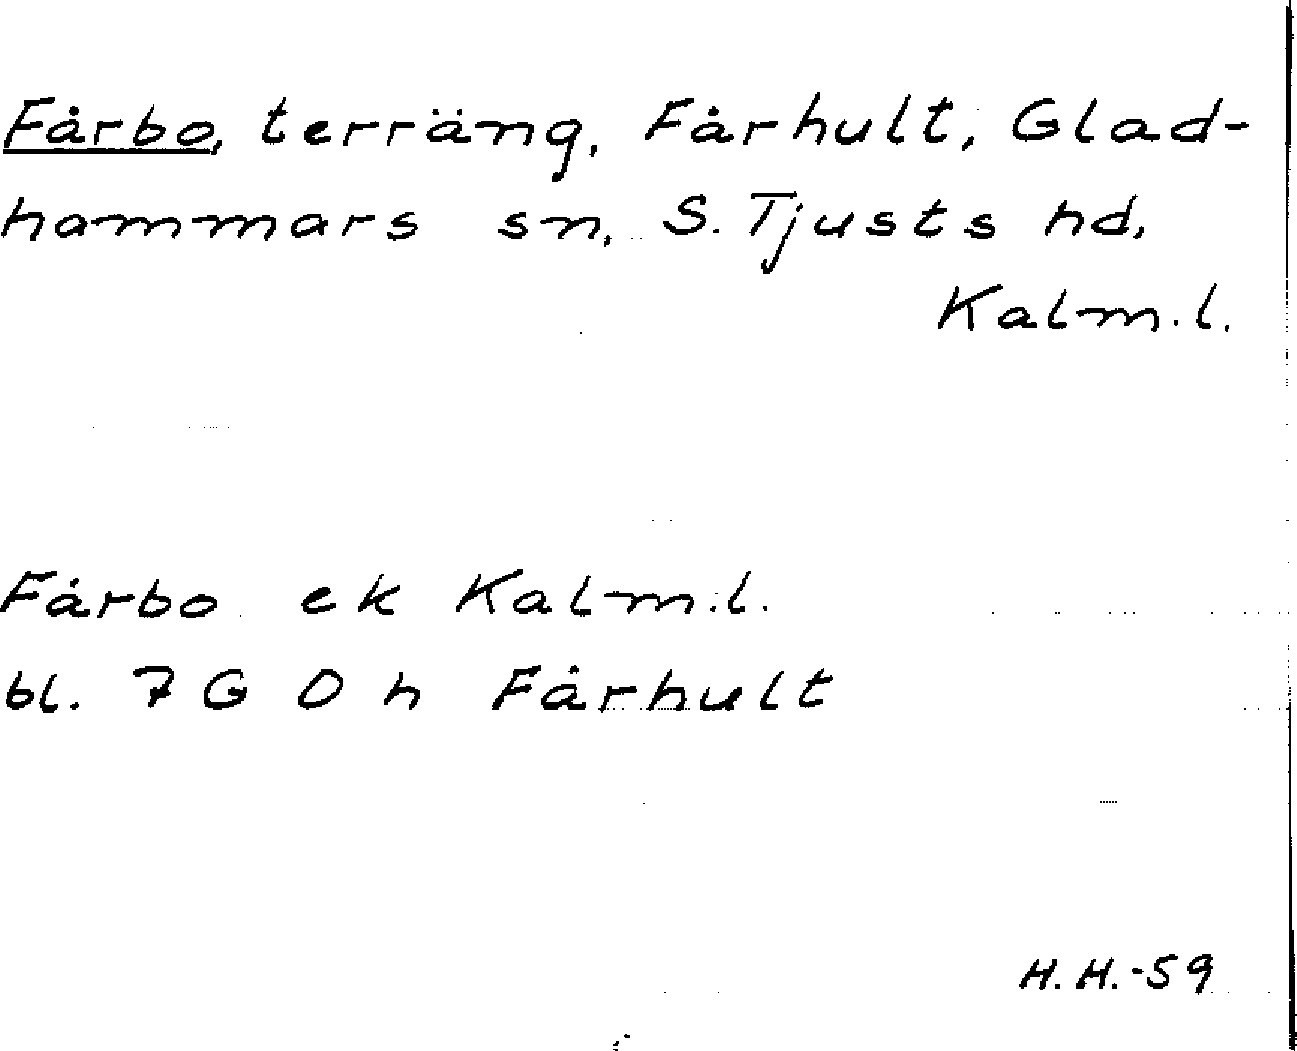 Fårbo, terräng, Fårhult, Glad-
hammars sn, S. Tjusts hd,
Kalm.l.
Fårbo ek Kalm.l.
bl. 7 G 0 h Fårhult
H.H.-59